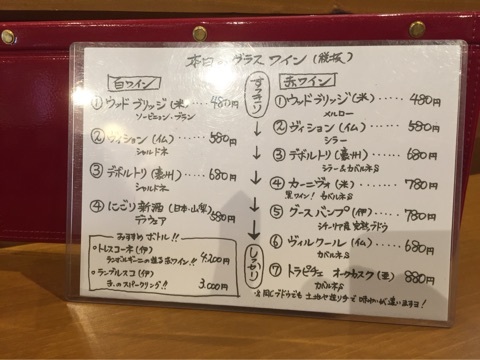 本日 グラスワイン (税抜)
白ワイン
① ウッドブリッジ(米)・・・・480円
ソービニョン・ブラン
② ヴィジョン(仏)・・・・・580円
シャルドネ
③ デボルトリ(豪州)・・・・680円
シャルドネ
④ にごり新酒(日本・山梨)
デラウェア 580円
おすすめボトル!!
・トレスコーネ(伊)
ランボルギーニの造る赤ワイン!! 4,200円
・ランブルスコ(伊)
赤のスパークリング!! 3,000円
すっきり
↓
↓
↓
↓
しっかり
赤ワイン
① ウッドブリッジ(米)・・・・480円
メルロー
② ヴィジョン(仏)・・・・・580円
シラー
③ デボルトリ(豪州)・・・・680円
シラー&カベルネS
④ カーニヴォ(米)・・・・・780円
黒ワイン! カベルネS
⑤ グースバンプ(伊)・・・・780円
シチーリア産 完熟ブドウ
⑥ ヴィルクール(仏)・・・・680円
カベルネS
⑦ トラピチェ オークカスク(亜)・・・880円
カベルネS
※同じブドウでも土地や造り手で味わいが違いますヨ!